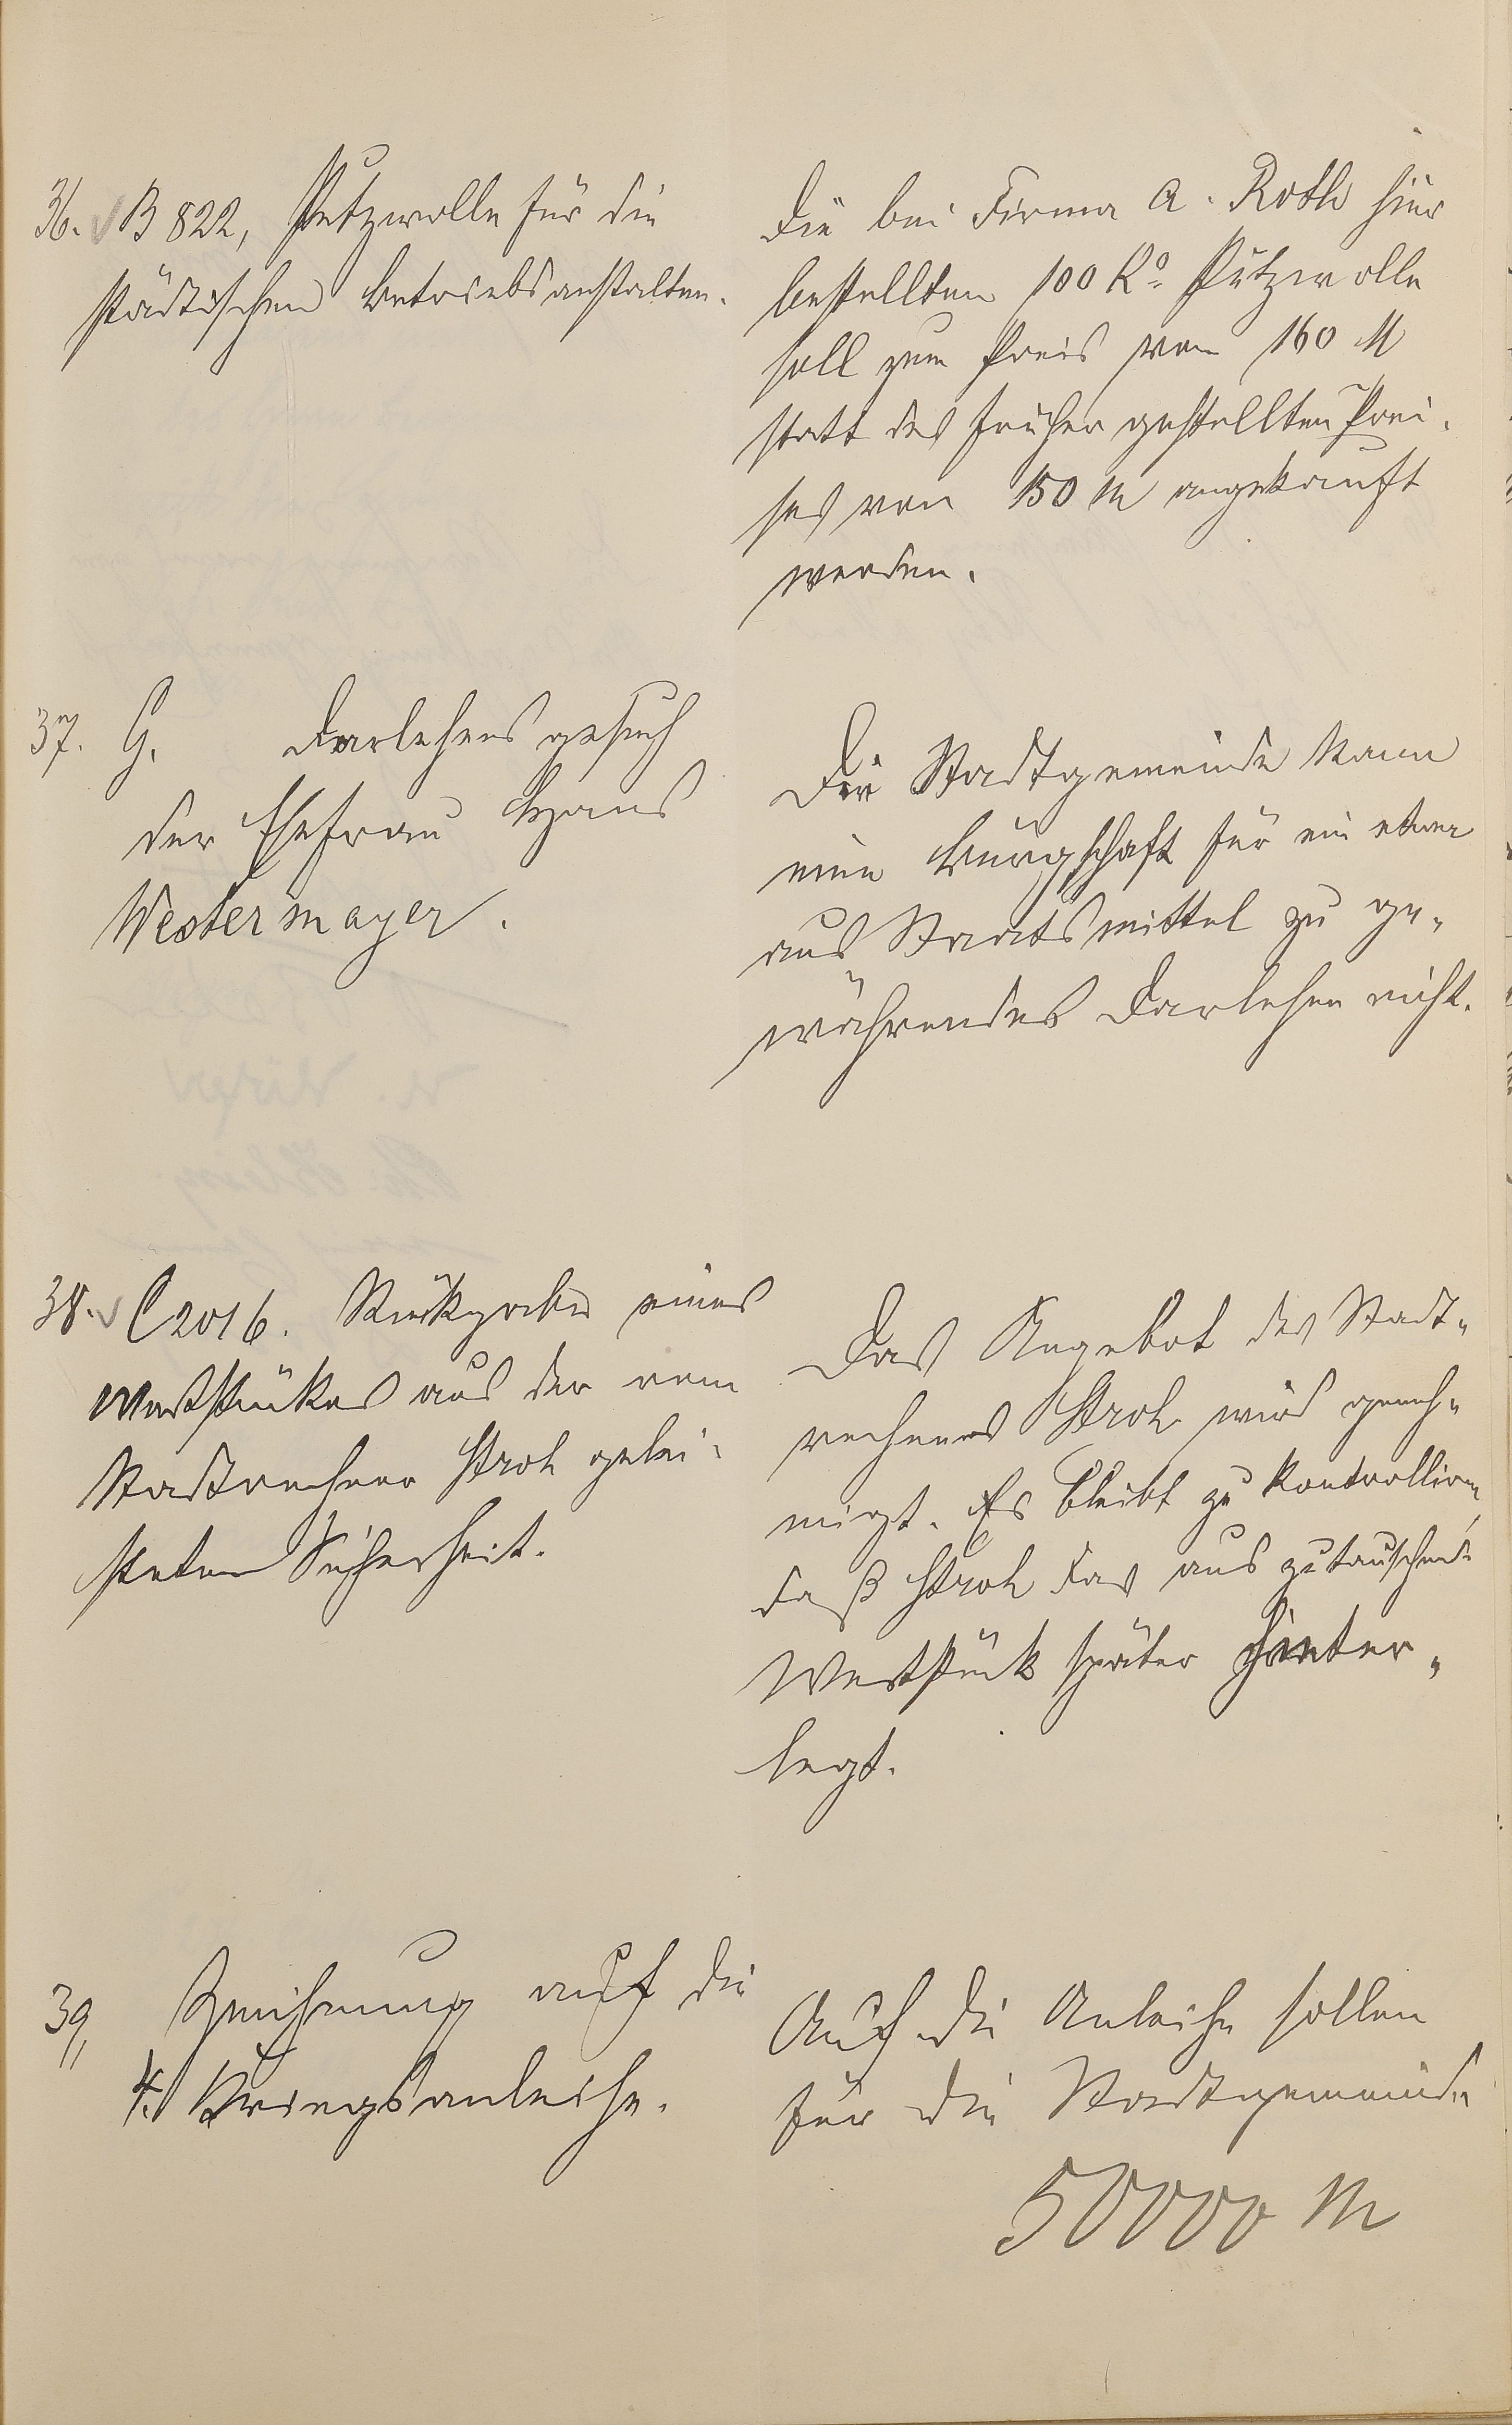 36. B 822, Putzwolle für die
städtischen Betriebsanstalten.
Die bei Firma A. Roth hier
bestellten 100 Ko. Putzwolle
soll zum Preis von 160 M
statt des früher gestellten Prei-
ses von 150 M angekauft
werden.
37. G. Darlehensgesuch
der Ehefrau Hans
Westermayer.
Die Stadtgemeinde kann
eine Bürgschaft für ein etwa
aus Staatsmittel zu ge-
währendes Darlehen nicht.
38. C 2016. Rückgabe eines
Wertstückes aus der vom
Stadtrechner Stroh gelei-
steten Sicherheit.
Das Angebot des Stadt-
rechners Stroh wird geneh-
migt. Es bleibt zu kontrollieren,
daß Stroh das auszutauschende
Wertstück später hinter-
legt.
39. Zeichnung auf die
4. Kriegsanleihe.
Auf die Anleihe sollen
für die Stadtgemeinde
50000 M